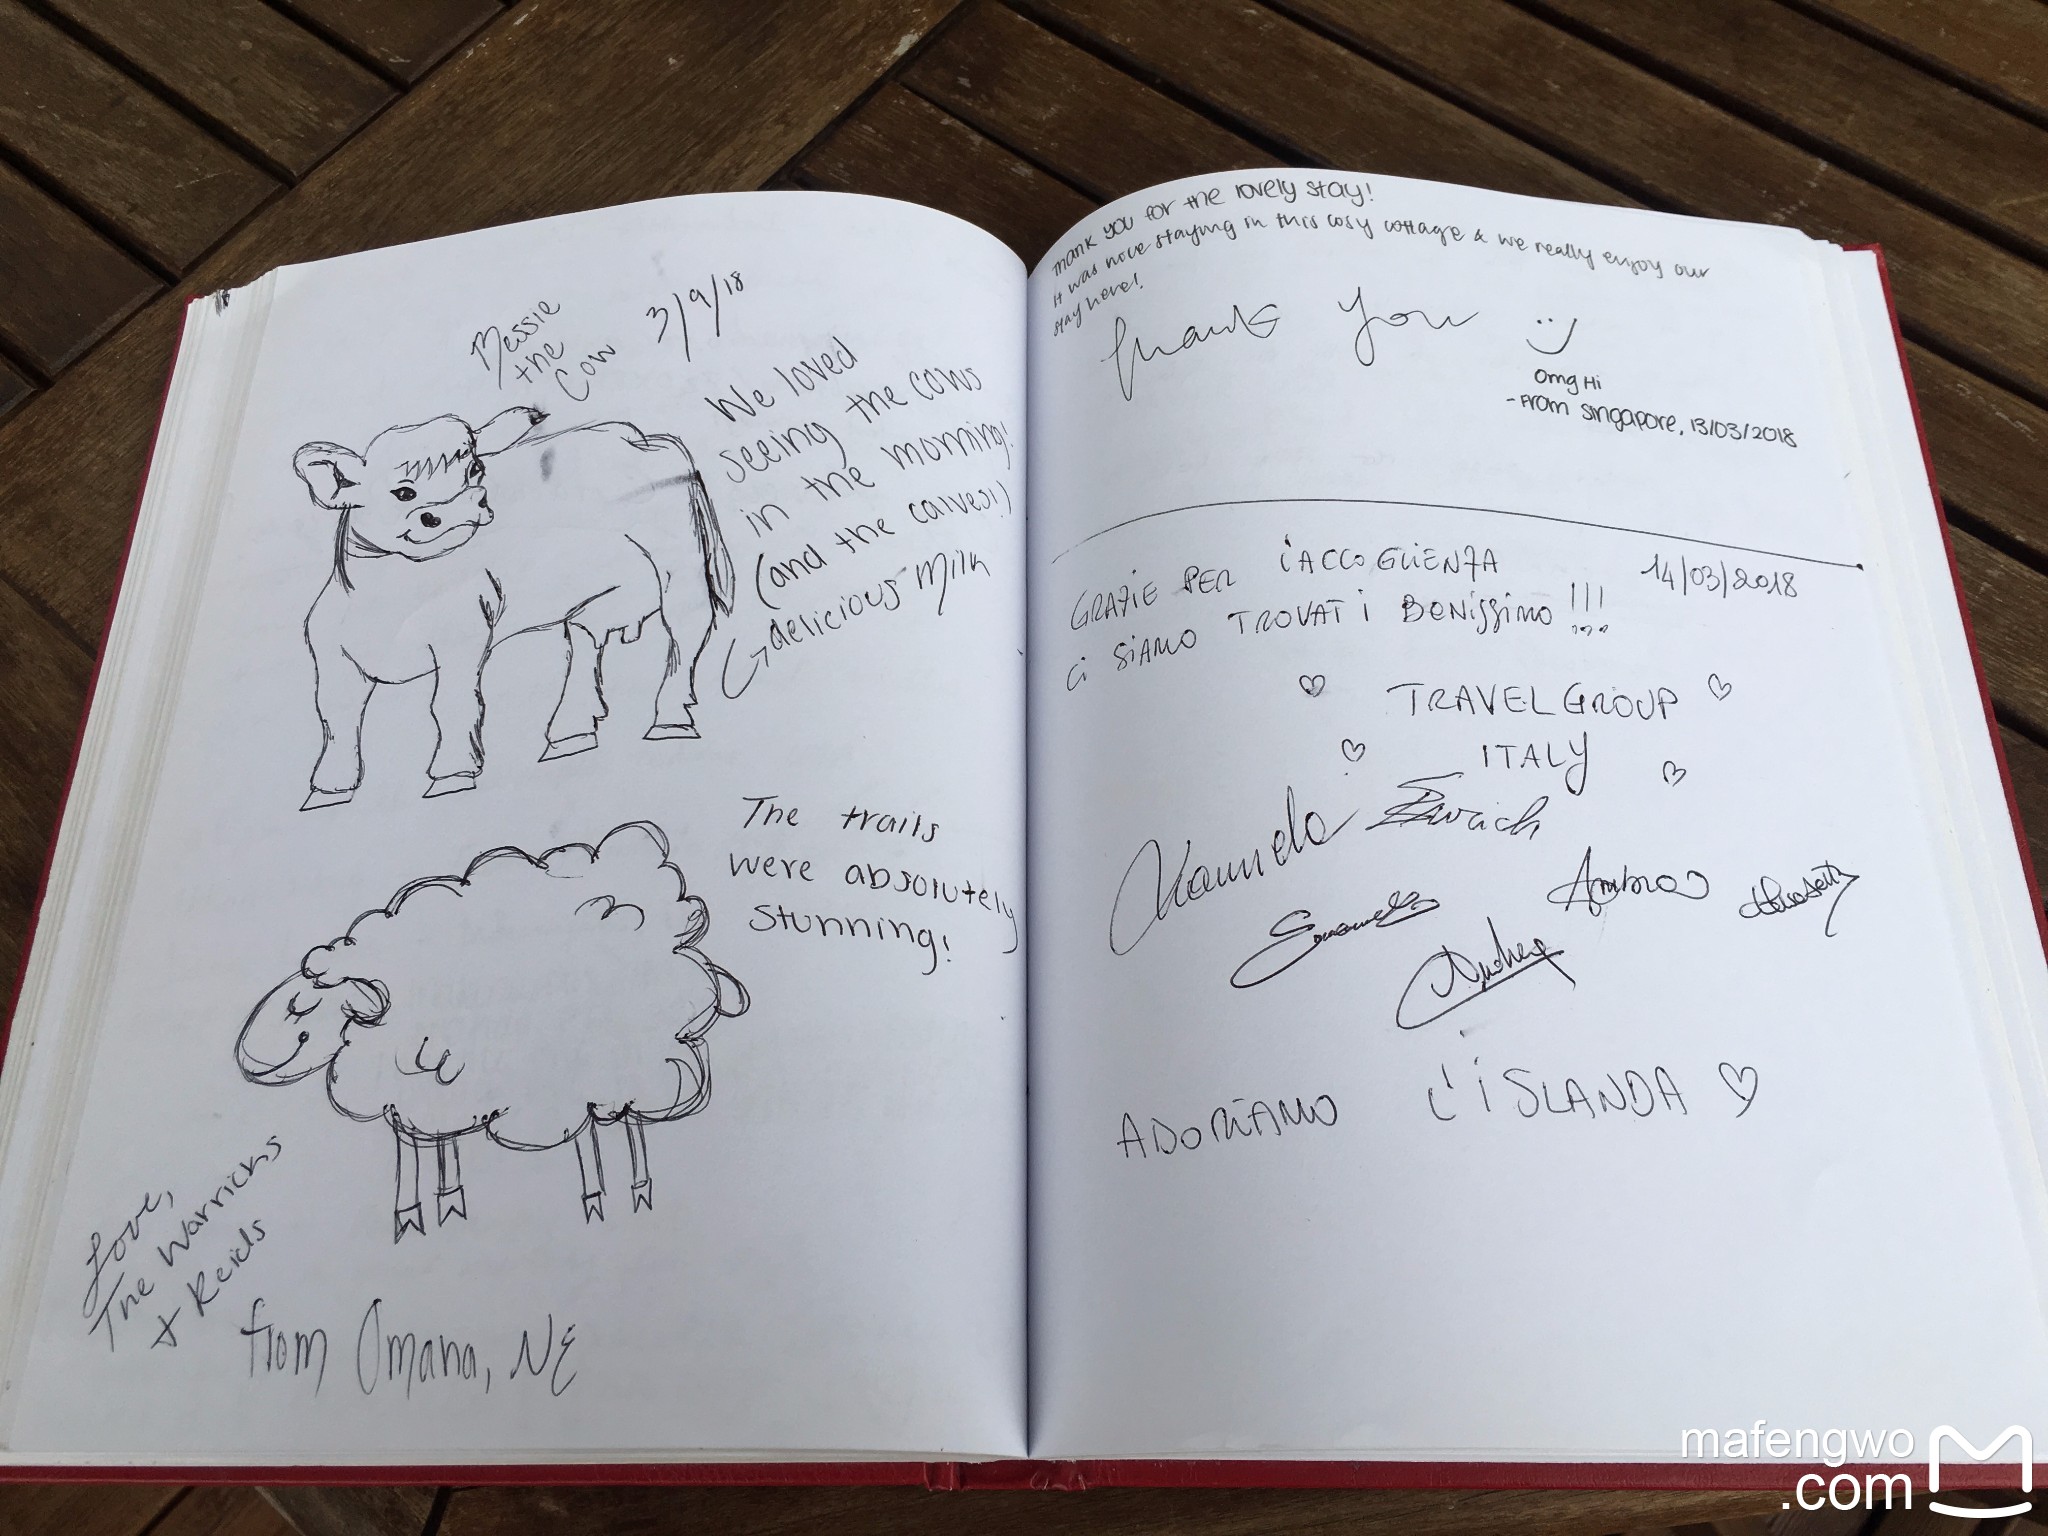 Bessie
the
Cow
3/9/18
We loved
seeing the cows
in the morning!
(and the calves!)
delicious milk
The trails
were absolutely
stunning!
Love,
The Warricks
+ Reids
from Omaha, NE
Thank you for the lovely stay!
It was nice staying in this cosy cottage & we really enjoy our
stay here!
Thank You
Omg Hi
- From Singapore, 13/03/2018
GRAZIE PER L'ACCOGLIENZA
14/03/2018
CI SIAMO TROVATI BENISSIMO!!!
TRAVEL GROUP
ITALY
Andrea
ADORIAMO L'ISLANDA
mafengwo
.com